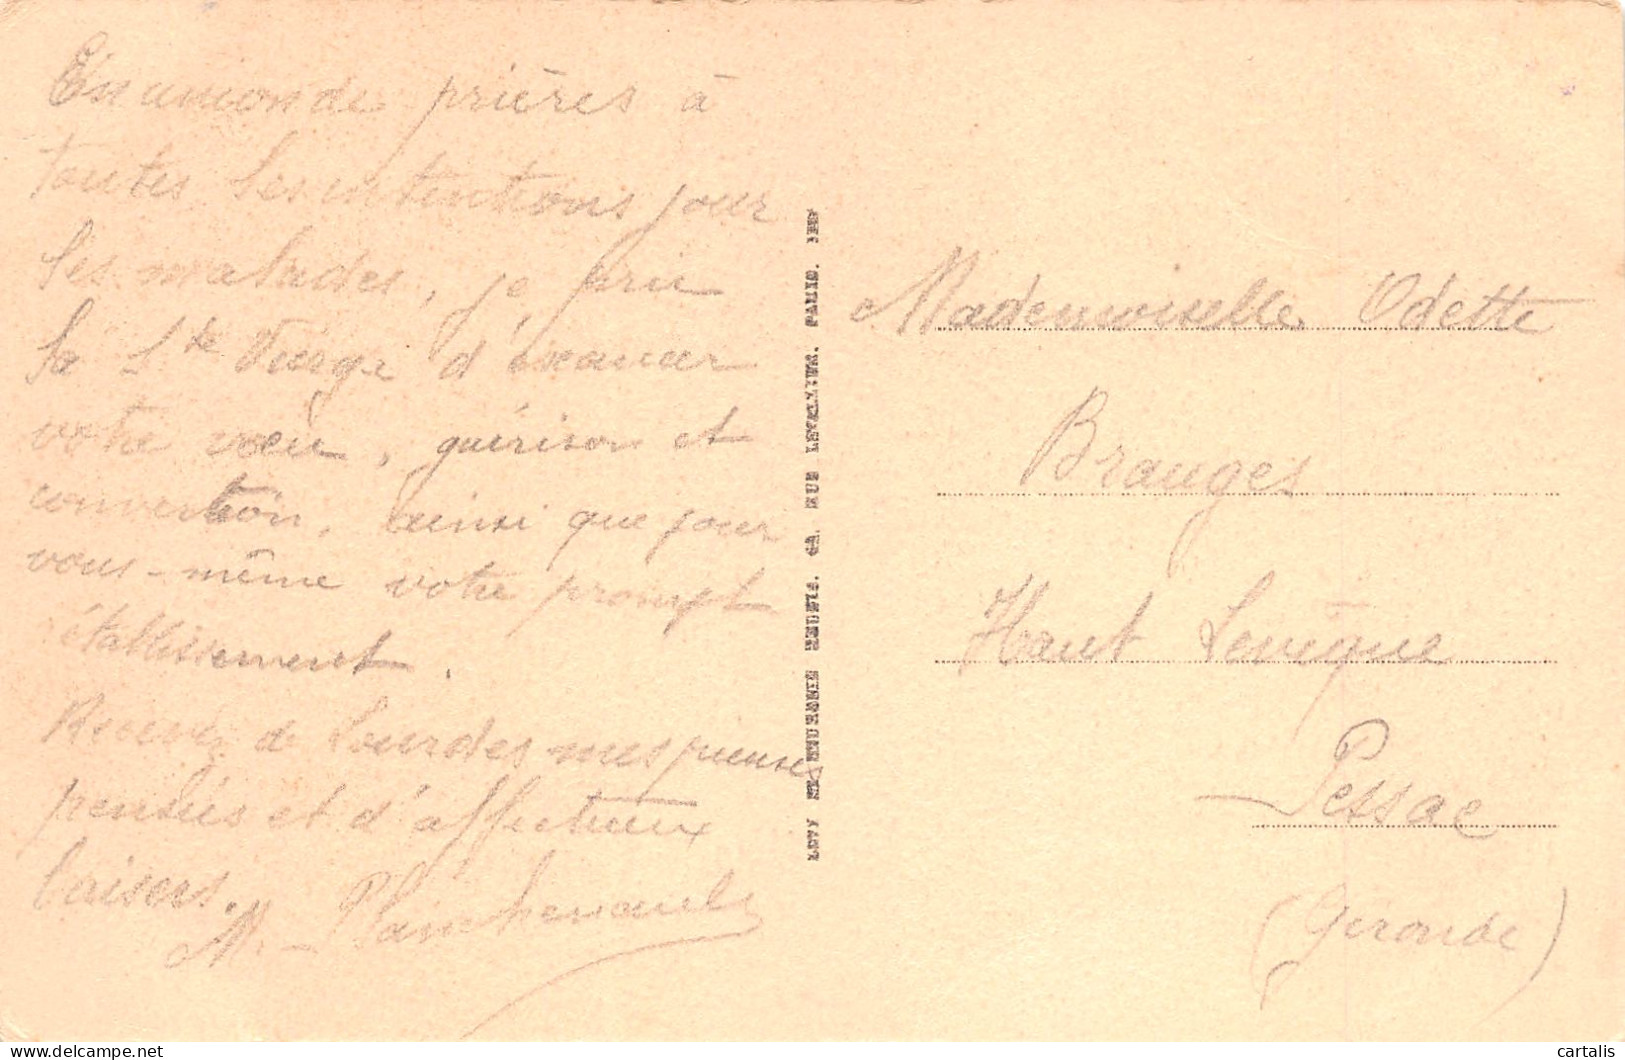 En union de prières à
toutes les intentions pour
les malades, je prie
la Ste Vierge d'exaucer
votre vœu, guérison et
conversion, ainsi que pour
vous-même votre prompt
établissement.
Recevez de Lourdes mes pieuses
pensées et d'affectueux
baisers.
M.
LEVY ET NEURDEIN REUNIS. 44. RUE LETELLIER. PARIS.
Mademoiselle Odette
Branges
Haut Levèque
Pessac
(Gironde)
cartalis
delcampe.net